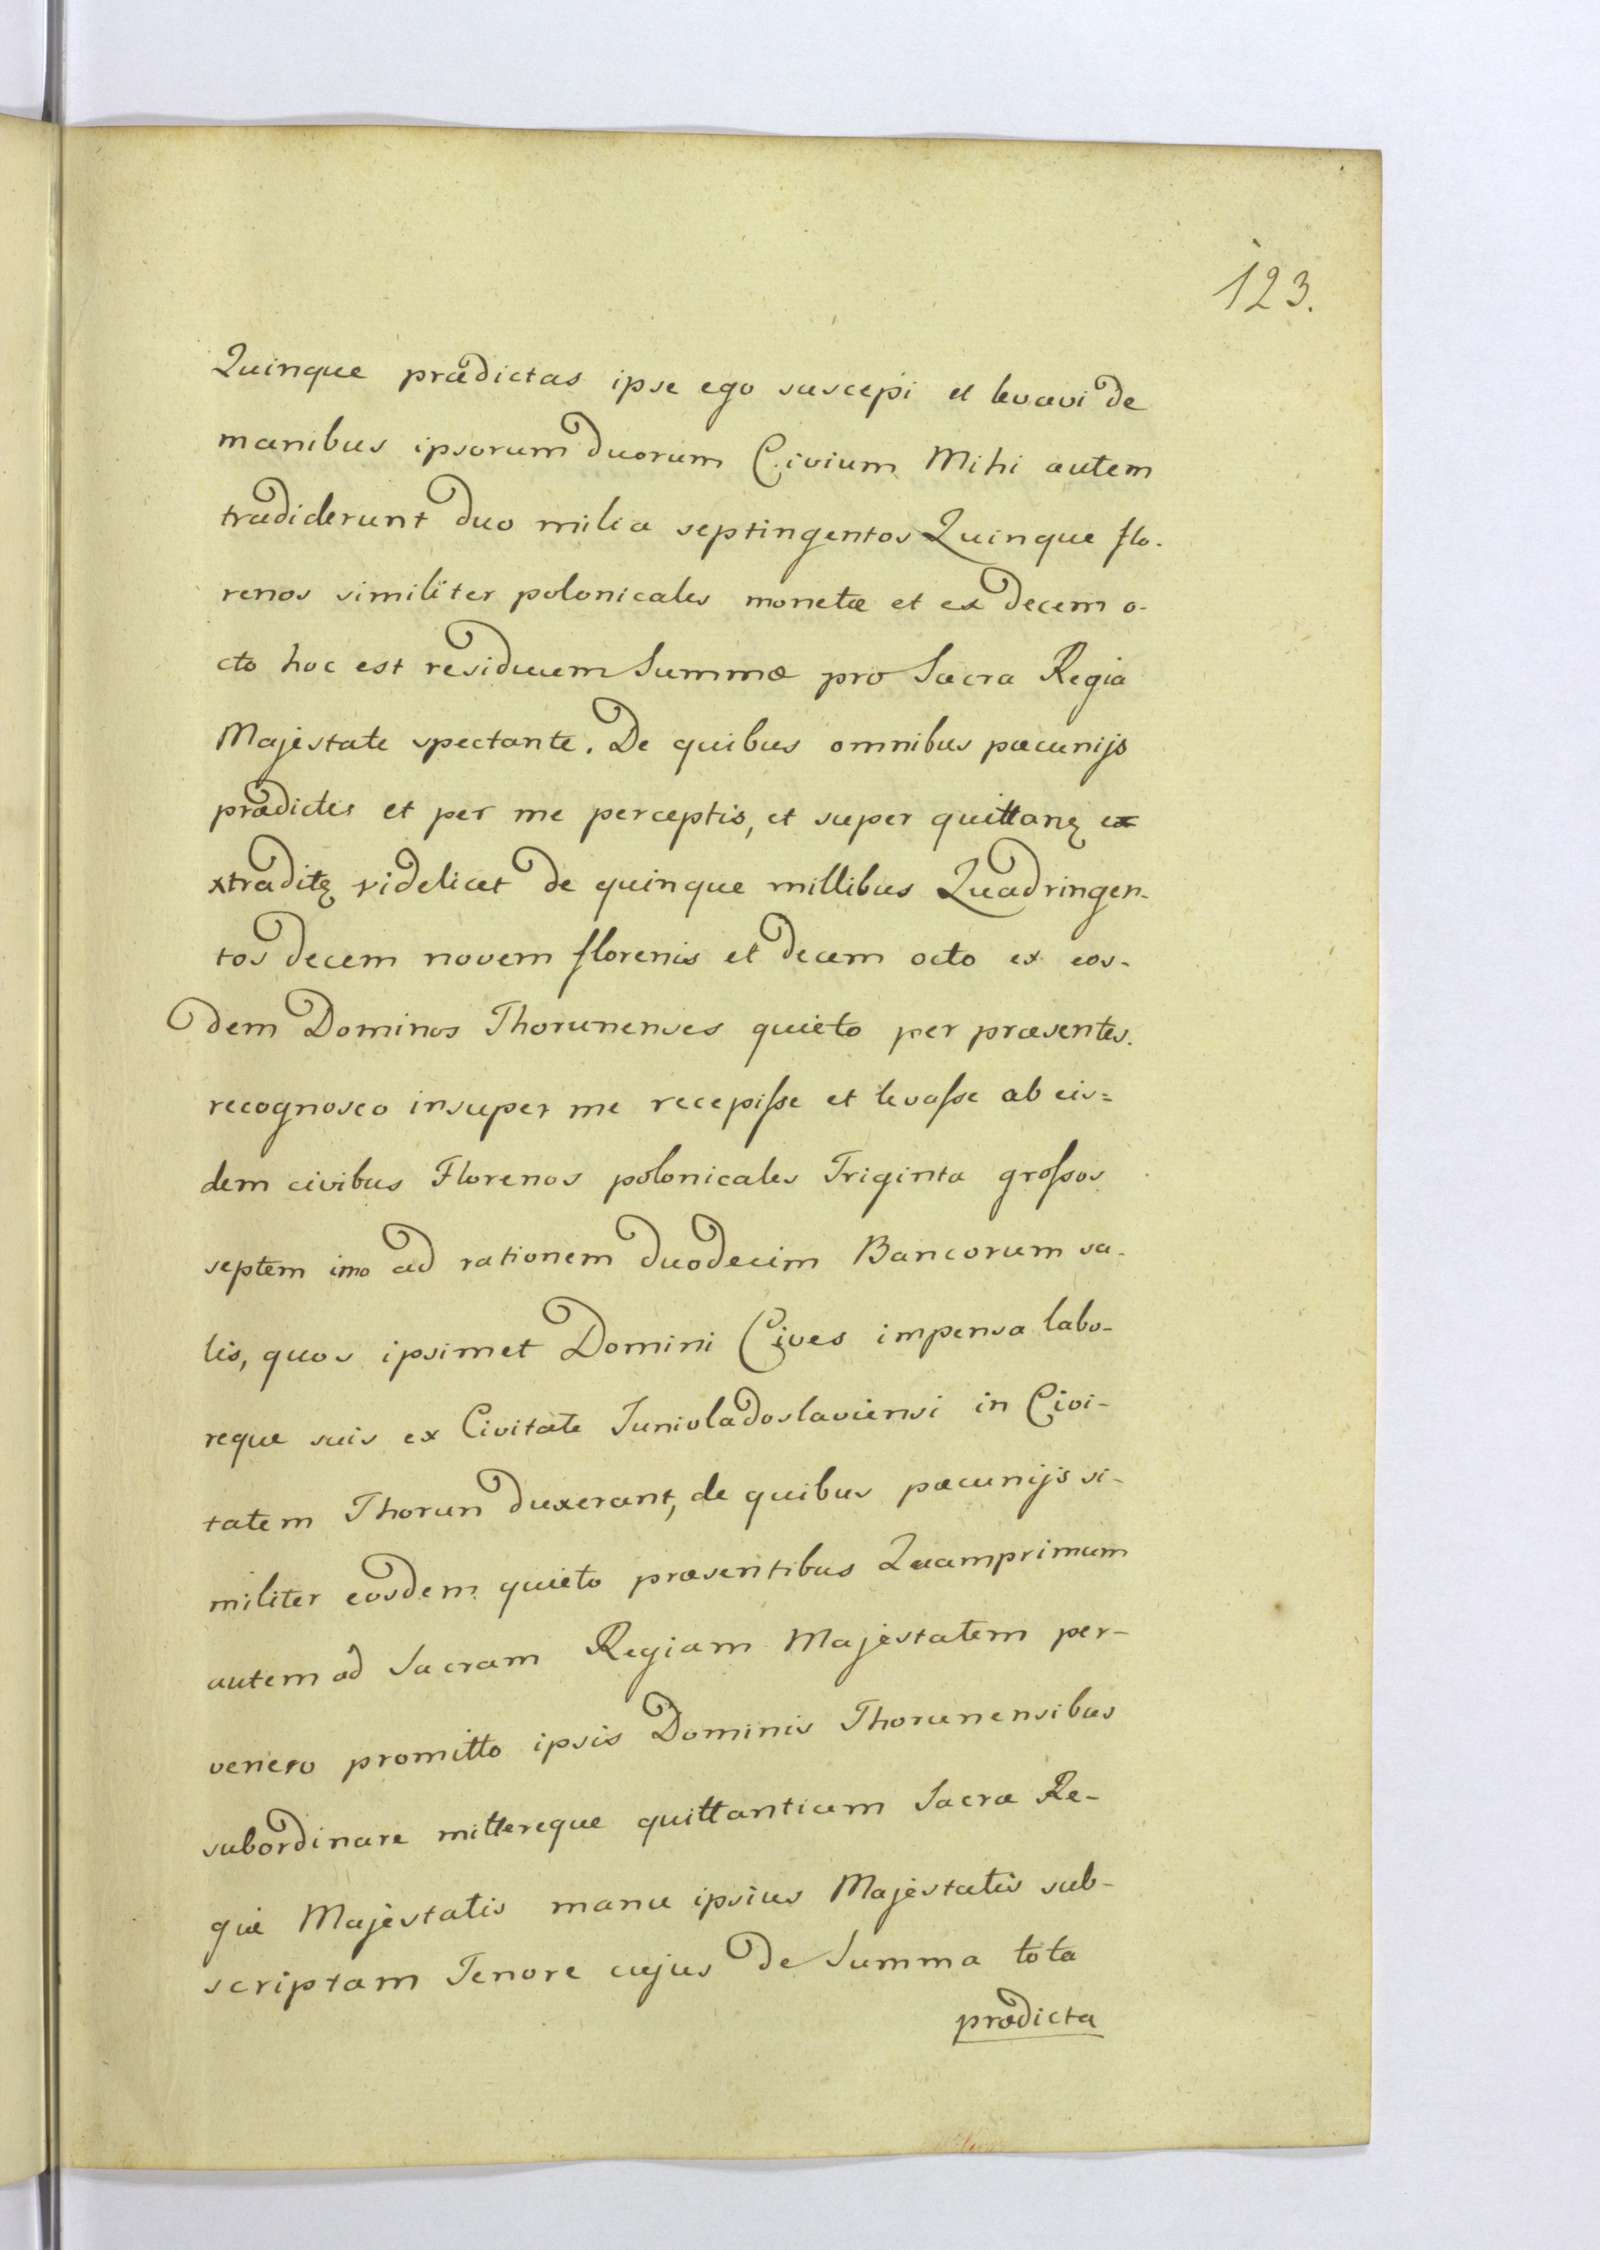 123.
Quinque prædictas ipse ego suscepi et levavi de
manibus ipsorum duorum Civium Mihi autem
tradiderunt duo milia septingentos Quinque flo-
renos similiter polonicales monetæ et ex decem o-
cto hoc est residuum Summæ pro Sacra Regia
Majestate spectante. De quibus omnibus pæcunijs
prædictis et per me perceptis, et super quittanę ex
xtraditę videlicet de quinque millibus Quadringen-
tos decem novem florenis et decem octo ex eos-
dem Dominos Thorunenses quieto per præsentes.
recognosco insuper me recepisse et levasse ab eis=
dem civibus Florenos polonicales Triginta grossos
septem imo ad rationem duodecim Bancorum sa-
lis, quos ipsimet Domini Cives impensa labo-
reque suis ex Civitate Junivladoslaviensi in Civi-
tatem Thorun duxerant, de quibus pæcunijs si-
militer eosdem quieto præsentibus Quamprimum
autem ad Sacram Regiam Majestatem per-
venero promitto ipsis Dominis Thorunensibus
subordinare mittereque quittantiam Sacræ Re-
giæ Majestatis manu ipsius Majestatis sub-
scriptam Tenore cujus de Summa tota
prædicta